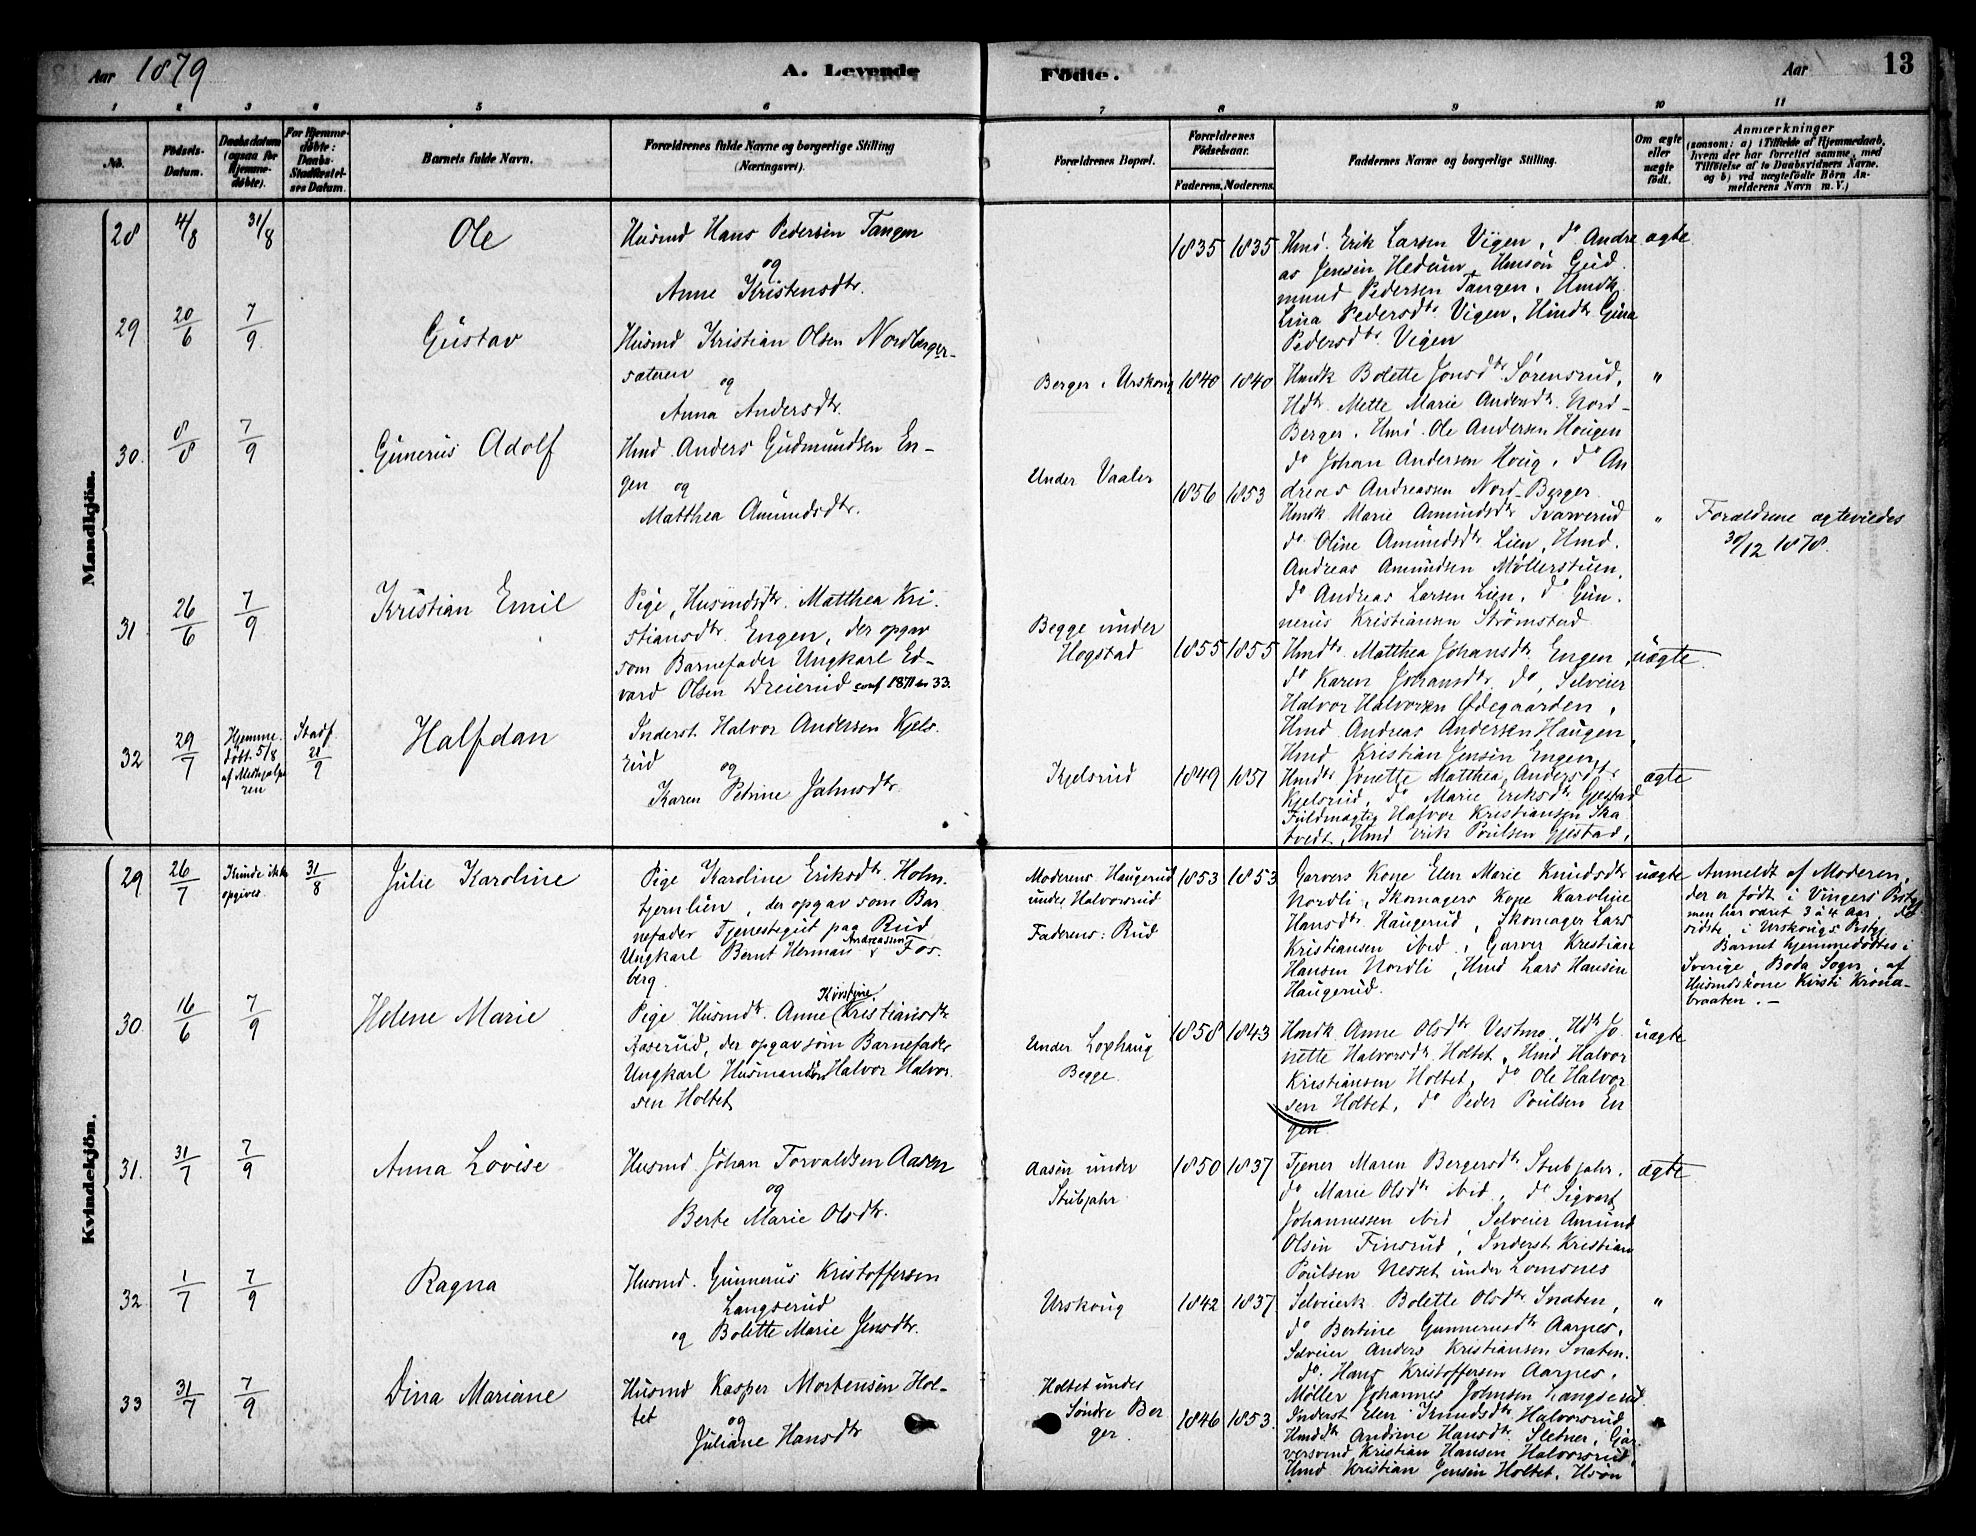 Aar 1879
A. Levende
Fødte.
Aar
13
1 2 3 4 5 6 7 8 9 10 11
No.
Fødsels-
Datum.
Daabsdatum
(ogsaa for
Hjemme-
døbte).
For Hjemme-
døbte:
Daabs-
Stadfæstel-
ses Datum.
Barnets fulde Navn.
Forældrenes fulde Navne og borgerlige Stilling
(Næringsvei).
Forældrenes Bopæl.
Forældrenes
Fødselsaar.
Faderens. Moderens.
Faddernes Navne og borgerlige Stilling.
Om ægte
eller
uægte
født.
Anmærkninger
(saasom: a) i Tilfælde af Hjemmedaab,
hvem der har forrettet samme, med
Tilføielse af to Daabsvidners Navne,
og b) ved uægtefødte Børn An-
melderens Navn m. V.)
Mandkjön.
28 4/8 31/8 Ole
Husmd Hans Pedersen Tangen
og
Anne Kristensdtr.
1835 1835
Hmd. Erik Larsen Vigen, do Andre
as Jensen Hedum, Hmsøn Gud
mund Pedersen Tangen, Hmdk
Lina Pedersdtr Vigen, Hmdtr Gina
Pedersdtr Vigen
ægte
29 20/6 7/9 Gustav
Husmd Kristian Olsen Nordberger-
sæteren
og
Anna Andersdtr.
Berger i Urskoug 1840 1840
Hmdk Bolette Jonsdtr Sørensrud,
Hdtr. Mette Marie Andersdtr. Nord-
Berger, Hmd. Ole Andersen Hougen
do Johan Andersen Houg, do An
dreas Andreassen Nord-Berger
"
30. 8/8 7/9 Gunerius Adolf
Hmd. Anders Gudmundsen En-
gen og
Matthea Amundsdtr.
Under Vaaler
1856 1853
Hmdk Marie Amundsdtr Svarverud
do Oline Amundsdtr Lien, Hmd.
Andreas Amundsen Møllerstuen,
do Andreas Larsen Lien, do Gun-
nerius Kristiansen Strømstad
"
Forældrene ægteviedes
30/12 1878.
31 26/6 7/9 Kristian Emil
Pige, Husmdsdtr. Matthea Kri-
stiansdtr. Engen, der opgav
som Barnefader Ungkarl Ed-
vard Olsen Dreierud conf 1871 no 33.
Begge under
Hogstad
1855 1855
Hmdtr. Matthea Johansdtr Engen,
do Karen Johansdtr, do, Selveier
Halvor Halvorsen Ødegaarden,
Hmd Andreas Andersen Haugen,
Hmd Kristian Jensen Engen
uægte
32 29/7
Hjemme-
døbt 5/8
af Medhjælpe
ren
Stadf.
21/9
Halfdan
Inderst Halvor Andersen Kjels-
rud
og
Karen Petrine Jahnsdtr.
Kjelsrud 1849 1851
Hmdtr Jonette Matthea Andersdtr
Kjelsrud, do Marie Eriksdtr Gjestad
Fuldmægtig Halvor Kristiansen Ska
tvedt, Hmd Erik Poulsen Gjestad,
ægte
Kvindekjön.
29 26/7
Kunde ikke
opgives
31/8
Julie Karoline
Pige Karoline Eriksdtr. Holm-
tjernlien, der opgav som Bar
nefader Tjenestegut paa Rud
Ungkarl Bernt Herman Andreassen Fos-
berg.
Moderens: Haugerud
under Halvorsrud
Faderens: Rud
1853 1853
Garvers Kone Elen Marie Knudsdtr
Nordli, Skomagers Kone Karoline
Hansdtr Haugerud, Skomager Lars
Kristiansen ibid, Garver Kristian
Hansen Nordli, Hmd Lars Hansen
Haugerud.
uægte
Anmeldt af Moderen,
der er født i Vingers Prstgj
men har været 3 à 4 Aar, det
sidste, i Urskougs Prstgj.
Barnet hjemmedøbtes i
Sverige, Boda Sogn, af
Husmdskone Kirsti Krona-
braaten. —
30. 16/6 7/9 Helene Marie
Pige Husmdtr. Anne Kirstine Kristiansdtr
Aaserud, der opgav som Barnefader
Ungkarl Husmandssøn Halvor Halvor-
sen Holtet
Under Loxhaug
Begge.
1858 1843
Hmdk Anne Olsdtr Vestmo, Hdtr Jo
nette Halvorsdtr Holtet, Hmd Halvor
Kristiansen Holtet, do Ole Halvor
sen Holtet, do Peder Poulsen En
gen.
uægte
31. 31/7 7/9 Anna Lovise
Husmd Johan Torvaldsen Aasen
og
Berte Marie Olsdtr.
Aasen under
Stubjahr
1850 1837
Tjener Maren Bergersdtr Stubjahr,
do Marie Olsdtr ibid, do Sigvart
Johannessen ibid, Selveier Amund
Olsen Finsrud, Inderst Kristian
Poulsen Nesset under Lomsnes
ægte
32 1/7 7/9 Ragna
Husmd. Gunnerus Kristoffersen
Langserud
og Bolette Marie Jensdtr.
Urskoug 1842 1837
Selveierk. Bolette Olsdtr Snaten,
do Bertine Gunnerusdtr Aarnes,
Selveier Anders Kristiansen Snaten.
do. Hans Kristoffersen Aarnes,
Møller Johannes Johnsen Langserud.
"
33 31/7 7/9 Dina Mariane
Husmd Kasper Mortensen Hol-
tet
og
Juliane Hansdtr
Holtet under
Søndre Ber
ger.
1846 1853
Inderst Elen Knudsdtr Halvorsrud,
Hmdtr Andrine Hansdtr. Sletner, Gar
versvend Kristian Hansen Halvorsrud,
Hmd Kristian Jensen Holtet, Hsøn
"